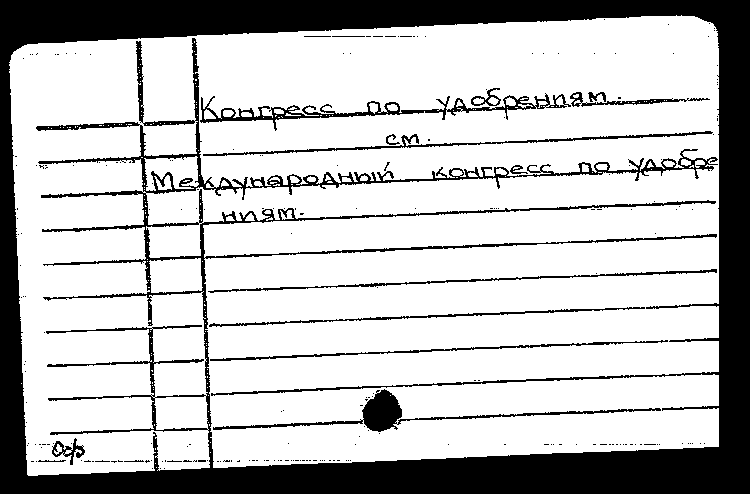 Конгресс по удобрениям.
см.
Международный конгресс по удобре
ниям.